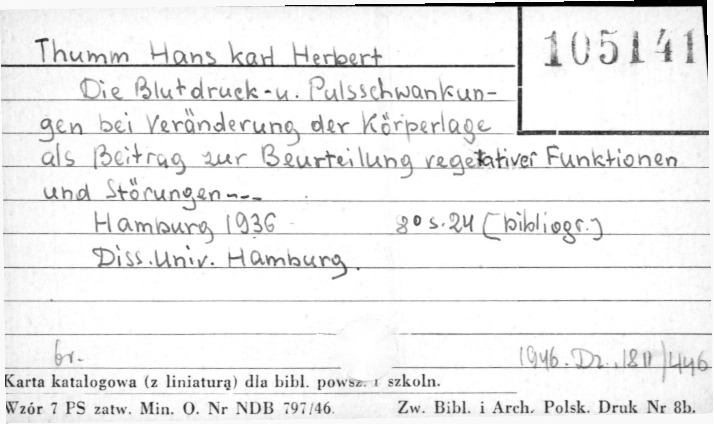 Thumm Hans Karl Herbert
105141
Die Blutdruck-u. Pulsschwankun-
gen bei Veränderung der Körperlage
als Beitrag zur Beurteilung vegetativer Funktionen
und Störungen---
Hamburg 1936 8° s.24 [bibliogr.]
Diss. Univ. Hamburg.
br. 1946. Dz.
Karta katalogowa (z liniaturą) dla bibl. powsz. i szkoln.
Wzór 7 PS zatw. Min. O. Nr NDB 797/46. Zw. Bibl. i Arch. Polsk. Druk Nr 8b.